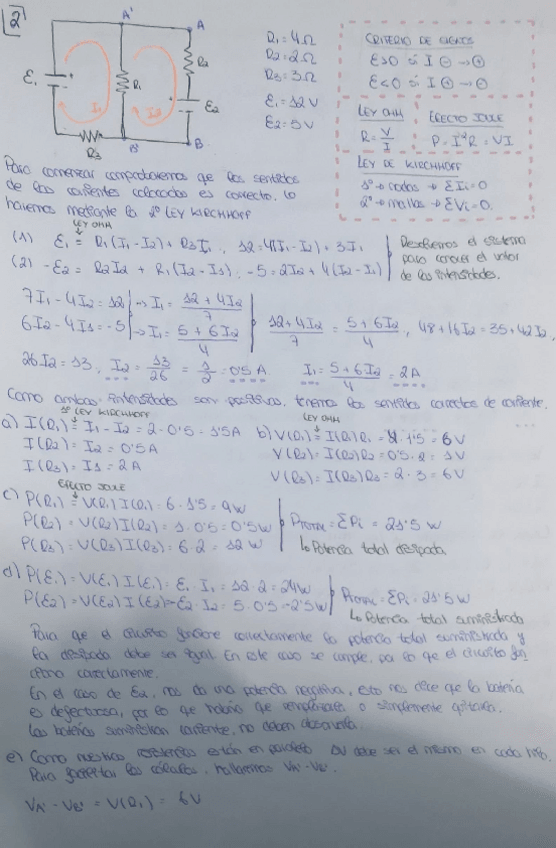 2
A'
A
R2
ε1
R1
ε2
I1
I2
R3
B'
B
R1=4Ω
R2=2Ω
R3=3Ω
ε1=12V
ε2=5V
CRITERIO DE SIGNOS
ε>0 si I ⊖→⊕
ε<0 si I ⊕→⊖
LEY OHM
R=V/I
EFECTO JOULE
P=I²R=VI
LEY DE KIRCHHOFF
1º→nodos→ΣIi=0
2º→mallas→ΣVi=0.
Para comenzar comprobaremos que los sentidos
de las corrientes colocados es correcto, lo
haremos mediante la 2º LEY KIRCHHOFF
LEY OHM
(1) ε1 = R1(I1-I2)+R3I1, 12=4(I1-I2)+3I1
(2) -ε2 = R2I2 + R1(I2-I1), -5=2I2+4(I2-I1)
el sistema
para conocer el valor
de las intensidades.
7I1-4I2=12 → I1 = (12+4I2)/7
6I2-4I1=-5 → I1 = (5+6I2)/4
(12+4I2)/7 = (5+6I2)/4, 48+16I2=35+42I2,
26I2=13, I2 = 13/26 = 1/2 = 0'5 A I1 = (5+6I2)/4 = 2A
Como ambas intensidades son positivas, tenemos los sentidos correctos de corriente.
1º LEY KIRCHHOFF
a) I(R1) = I1-I2 = 2-0'5 = 1'5A
I(R2) = I2 = 0'5A
I(R3) = I1 = 2A
LEY OHM
b) V(R1) = I(R1)R1 = 4·1'5 = 6V
V(R2) = I(R2)R2 = 0'5·2 = 1V
V(R3) = I(R3)R3 = 2·3 = 6V
EFECTO JOULE
c) P(R1) = V(R1)I(R1) = 6·1'5 = 9W
P(R2) = V(R2)I(R2) = 1·0'5 = 0'5W
P(R3) = V(R3)I(R3) = 6·2 = 12W
PTOTAL = ΣPi = 21'5 W
↳ Potencia total disipada
d) P(ε1) = V(ε1)I(ε1) = ε1·I1 = 12·2 = 24W
P(ε2) = V(ε2)I(ε2) = -ε2·I2 = 5·0'5 = -2'5W
PTOTAL = ΣPi = 21'5W
↳ Potencia total suministrada
Para que el circuito funcione correctamente la potencia total suministrada y
la disipada debe ser igual. En este caso se cumple, por lo que el circuito fun
ciona correctamente.
En el caso de ε2, nos da una potencia negativa, esto nos dice que la batería
es defectuosa, por lo que habría que remplazarla o simplemente quitarla.
Las baterías suministran corriente, no deben absorverla.
e) Como nuestras resistencias están en paralelo ΔV debe ser el mismo en cada
Para los cálculos, hallaremos VA'-VB'.
VA' - VB' = V(R1) = 6V